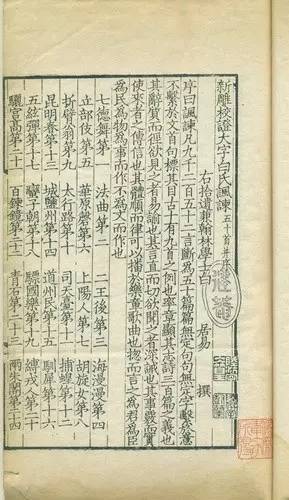 新雕校證大字白氏諷諫 五十首并序
右拾遺兼翰林學士白 居易 撰
序曰諷諫凡九千二百五十二言斷為五十篇篇無定句句無定字繫於意
不繫於文首句標其目古十有九首之例也卒章顯其志詩三百篇之義也
其辭質而徑欲見之者易諭也其言直而切欲聞之者深誡也其事覈而實
使來者之傳信也其體順而律可以播於樂章歌曲也揔而言之為君為臣
為民為物為事而作不為文而作也
七德舞第一 法曲第二 二王後第三 海漫漫第四
立部伎第五 華原磬第六 上陽人第七 胡旋女第八
折臂翁第九 太行路第十 司天臺第十一 捕蝗第十二
昆明春第十三 城鹽州第十四 道州民第十五 馴犀第十六
五絃彈第十七 蠻子朝第十八 驃國樂第十九 縛戎人第二十
驪宮高第二十一 百鍊鏡第二十二 青石第二十三 兩朱閣第二十四